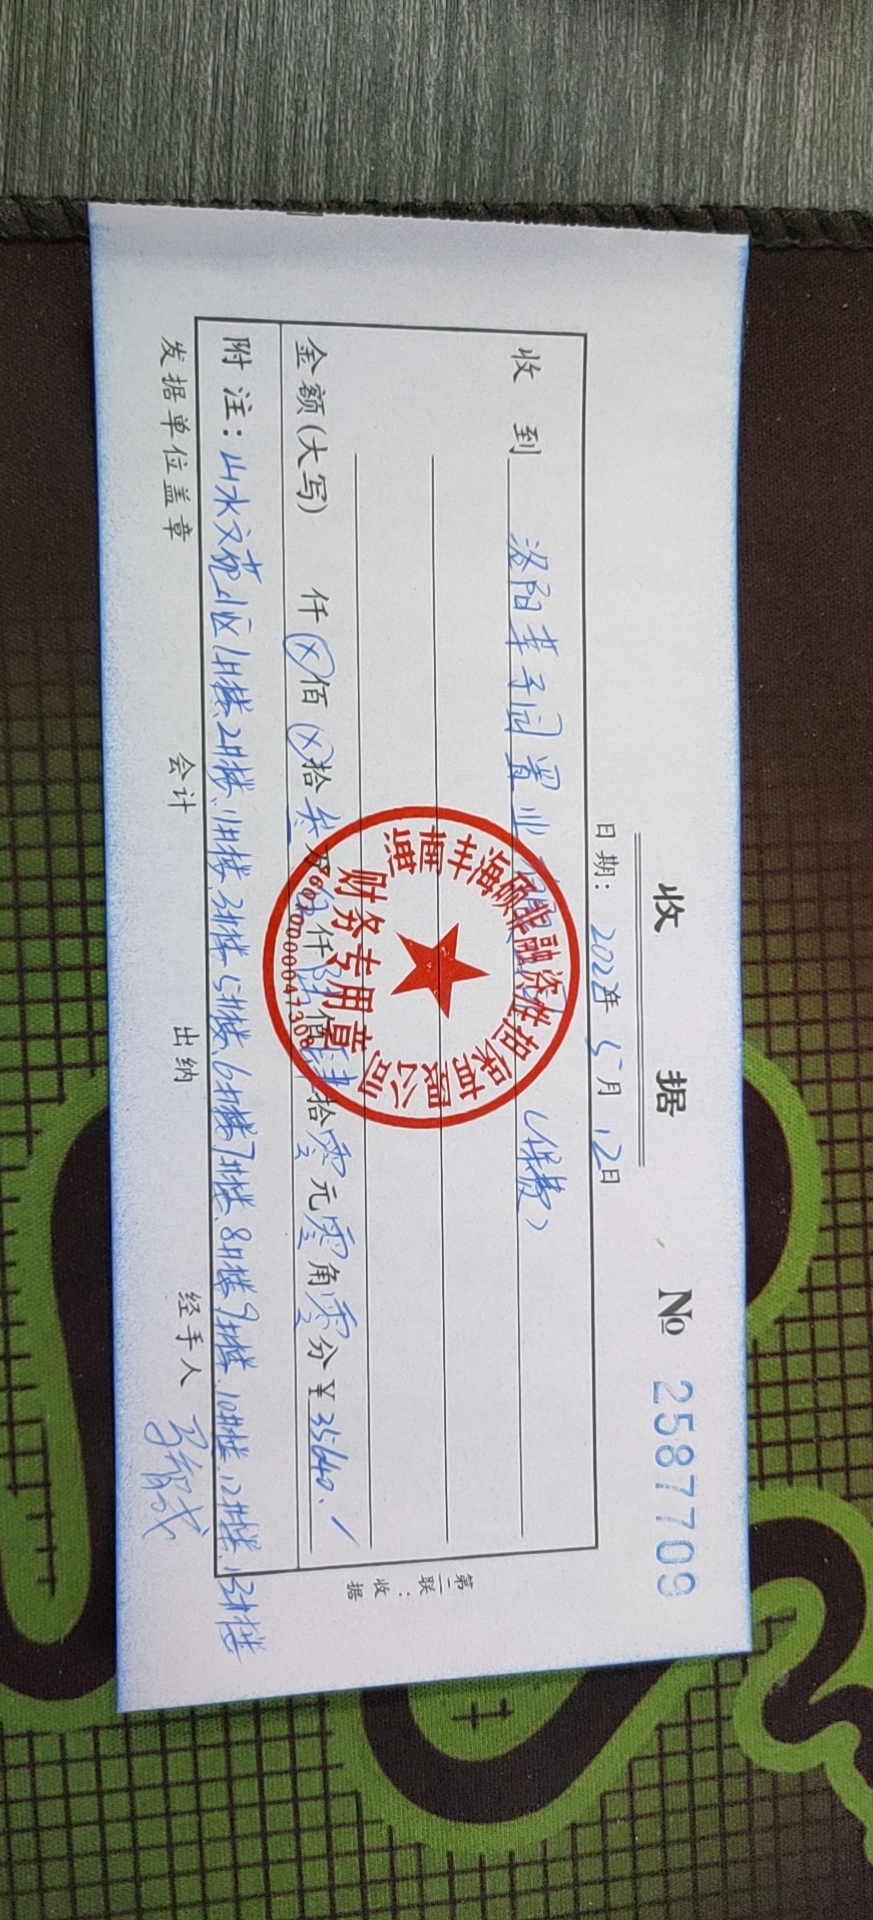 收 据
№ 2587709
日期：2022年 5月 12日
收 到 洛阳 子园置业（保费）
金额(大写) 仟⊗佰⊗拾叁万伍仟陆佰肆拾零元零角零分￥35640.
附 注：山水文苑小区1#楼、2#楼、1#楼、3#楼、5#楼、6#楼、7#楼、8#楼、9#楼、10#楼、12#楼、13#楼
发据单位盖章 会计 出纳 经手人
第二联：收据
海南丰海硕非融资性担保有限公司
财务专用章